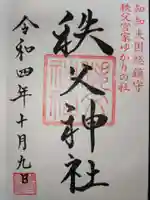 知知夫国総鎮守
秩父宮家ゆかりの社
秩父神社
令和四年十月九日